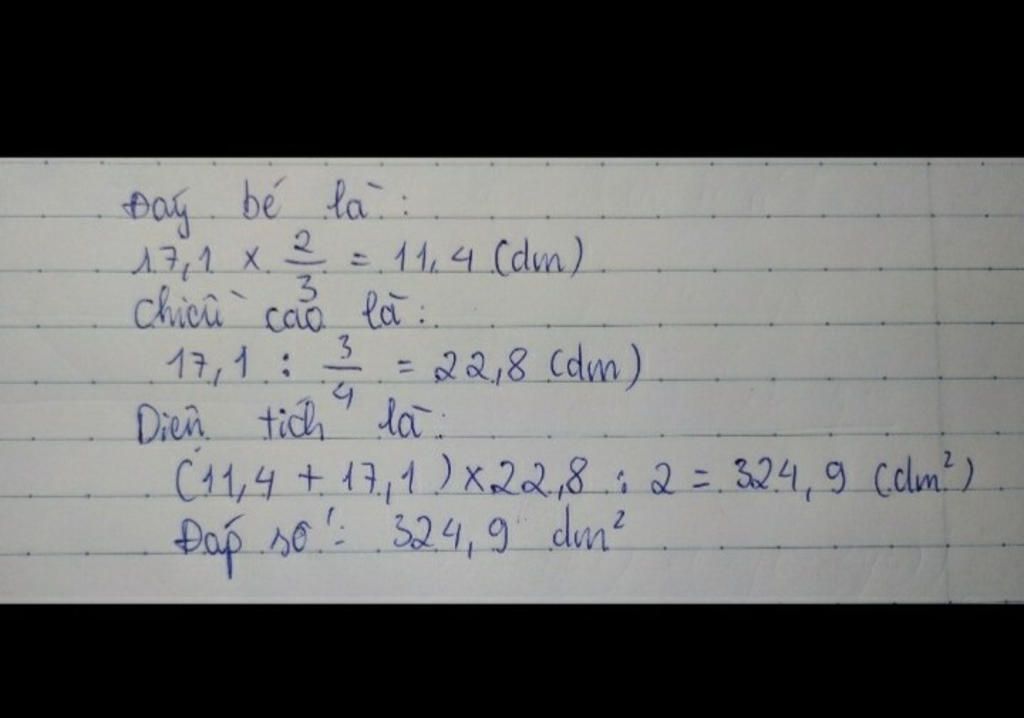 Đáy bé là:
17,1 × 2/3 = 11,4 (dm)
Chiều cao là:
17,1 : 3/4 = 22,8 (dm)
Diện tích là:
(11,4 + 17,1) × 22,8 : 2 = 324,9 (dm²)
Đáp số: 324,9 dm²